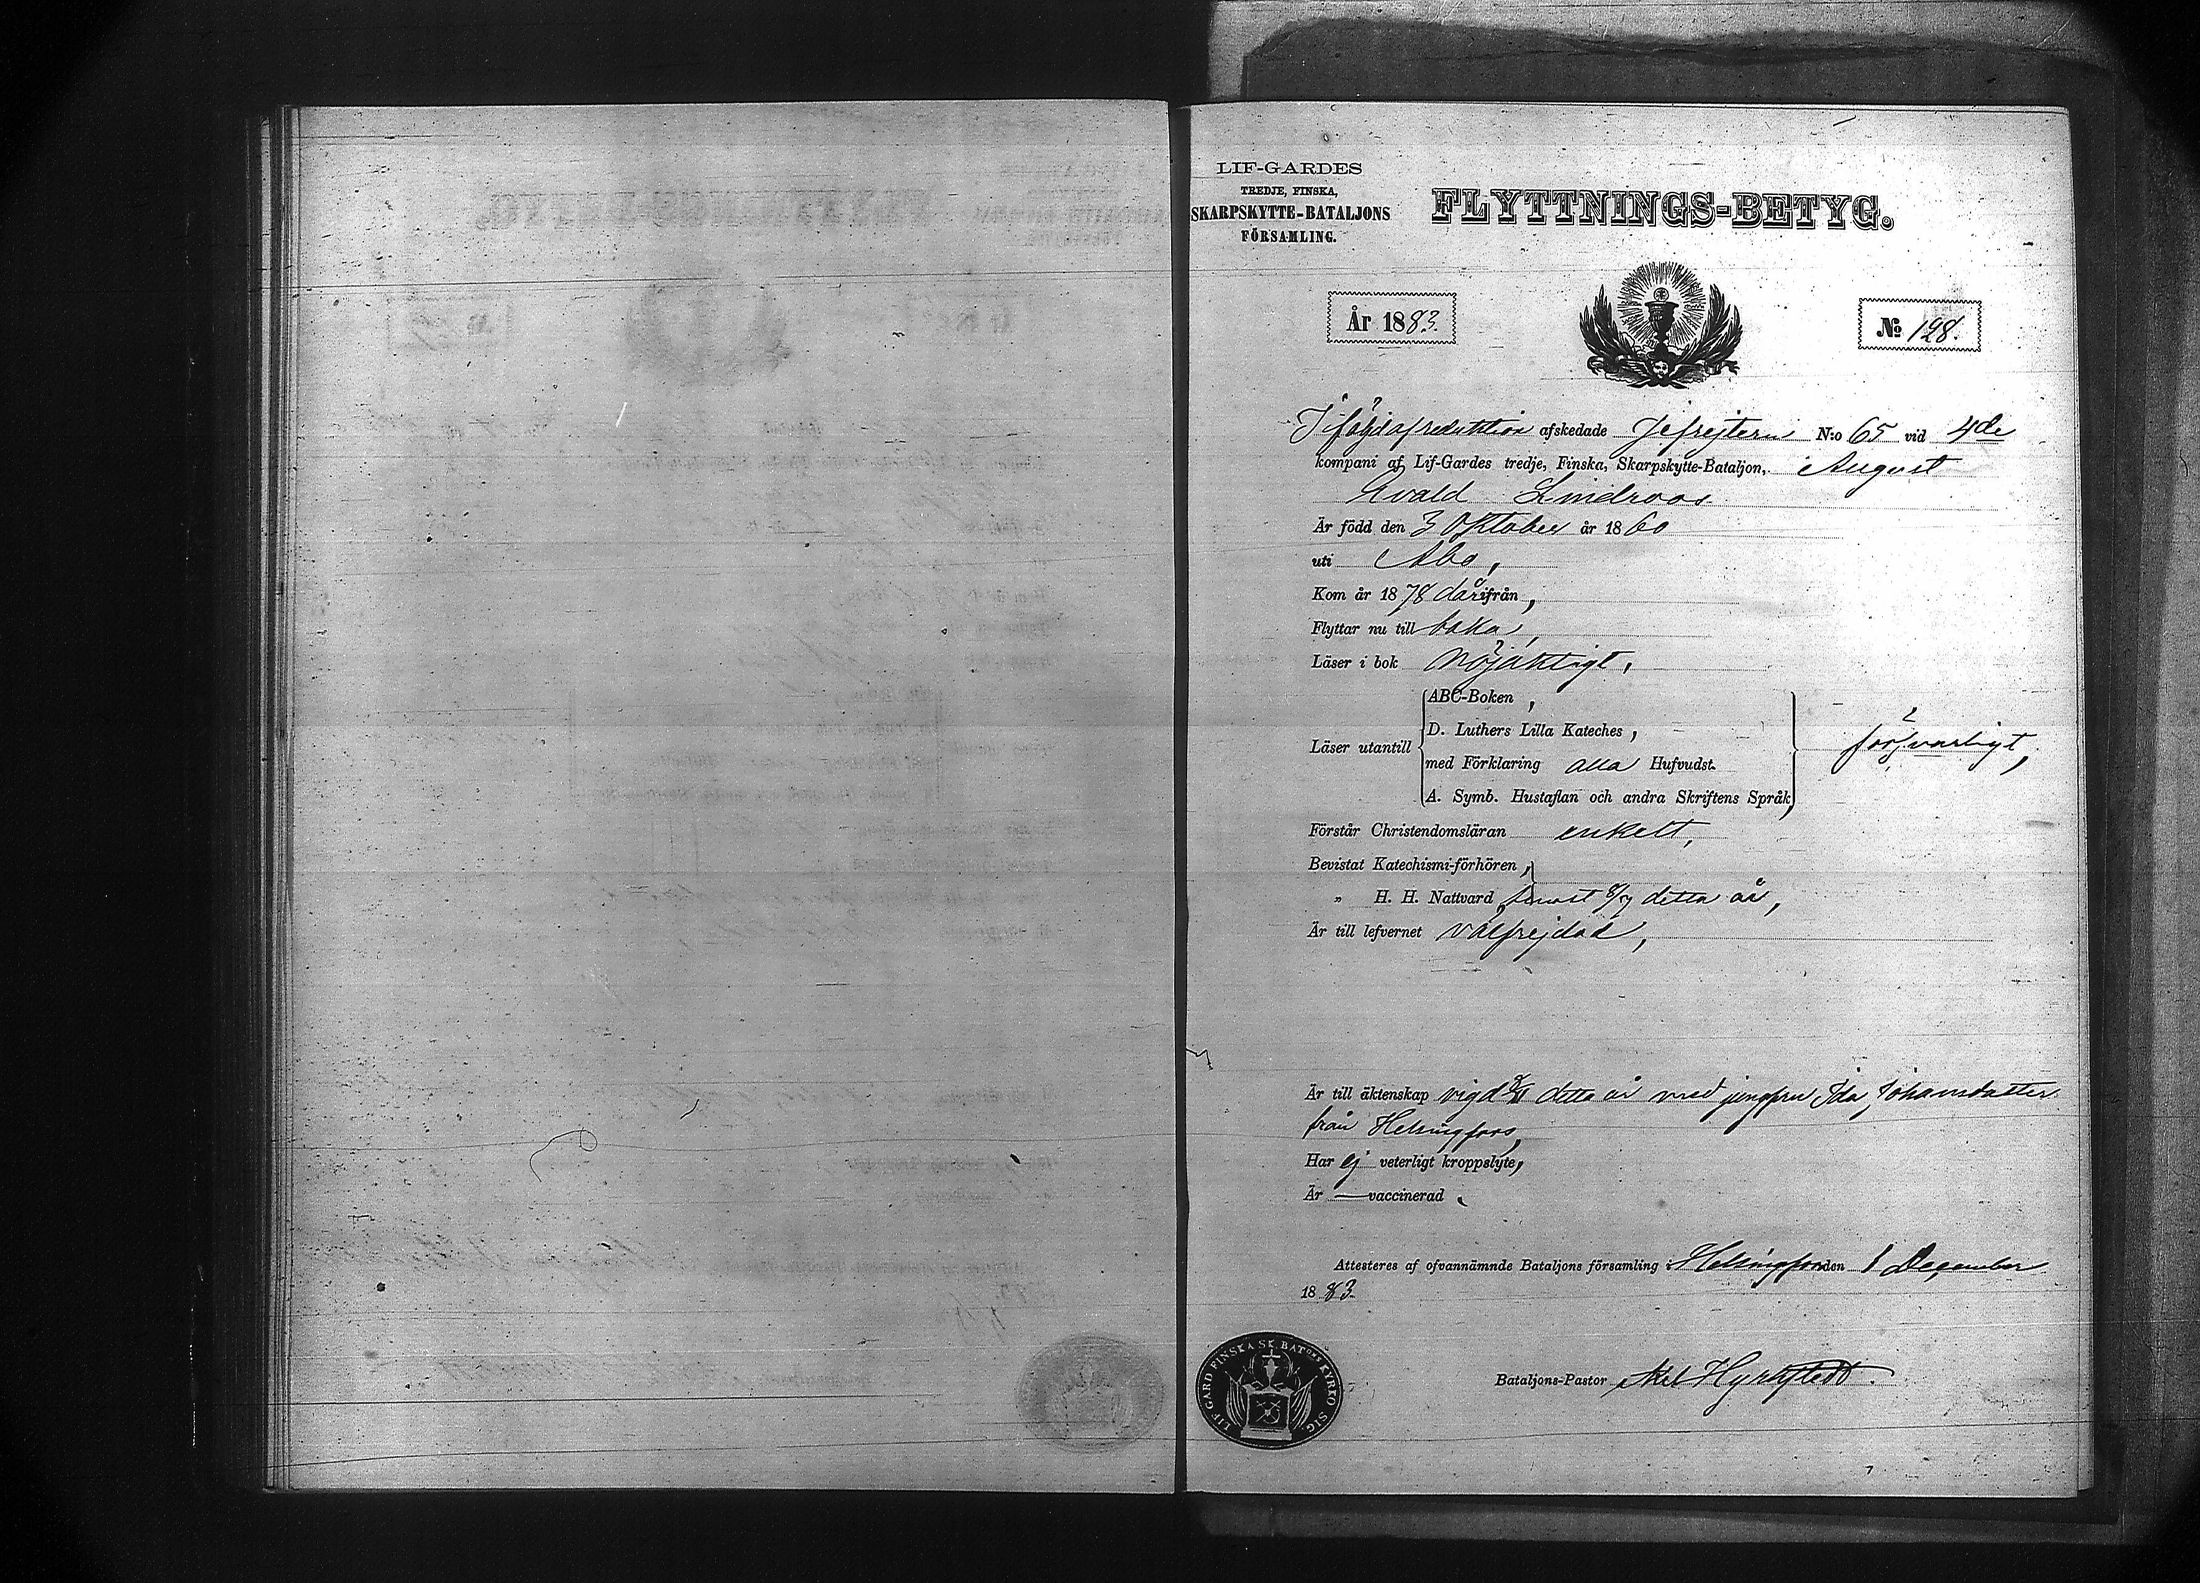 LIF-GARDES
TREDJE, FINSKA,
SKARPSKYTTE-BATALJONS
FÖRSAMLING.
FLYTTNINGS-BETYG.
År 1883.
№ 128.
I följd af reduktion afskedade Gefrejtern N:o 65 vid 4de
kompani af Lif-Gardes tredje, Finska, Skarpskytte-Bataljon, August
Evald Lindroos
Är född den 3 Oktober år 1860
uti Åbo,
Kom år 1878 därifrån,
Flyttar nu till baka,
Läser i bok Nöjaktigt,
Läser utantill
ABC-Boken,
D. Luthers Lilla Kateches,
med Förklaring alla Hufvudst.
A. Symb. Hustaflan och andra Skriftens Språk
försvarligt,
Förstår Christendomsläran enkelt,
Bevistat Katechismi-förhören,
„ H. H. Nattvard, senast 8/7 detta år,
Är till lefvernet välfrejdad,
Är till äktenskap vigd detta år med jungfru Ida Johansdotter
från Helsingfors,
Har ej veterligt kroppslyte,
Är — vaccinerad.
Attesteres af ofvannämnde Bataljons församling i Helsingfors den 1 December
1883.
Bataljons-Pastor Axel Hyrkstedt.
LIF GARD FINSKA SK. BAT:ONS KYRKO SIG.